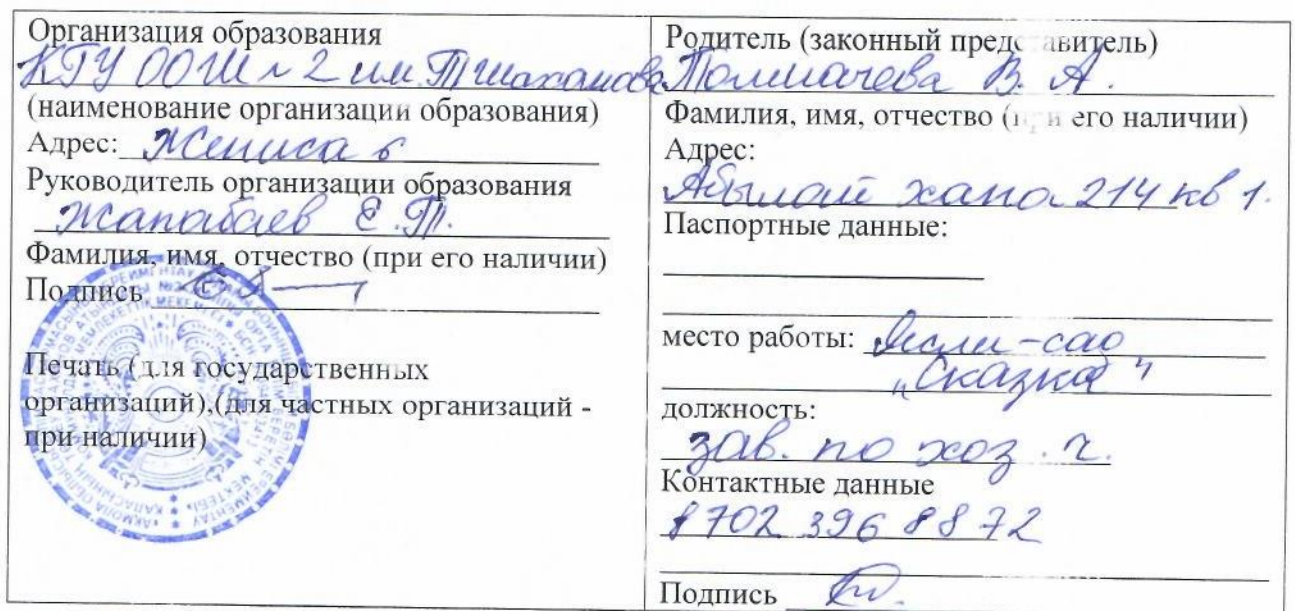 Организация образования
КГУ ООШ № 2 им. Т Шаханова
(наименование организации образования)
Адрес: Жениса 6
Руководитель организации образования
Жанабаев Е.Т.
Фамилия, имя, отчество (при его наличии)
Подпись
Печать (для государственных
организаций),(для частных организаций -
при наличии)
Родитель (законный представитель)
Толмачева В. А.
Фамилия, имя, отчество (при его наличии)
Адрес:
Абылай хана 214 кв 1.
Паспортные данные:
место работы: Ясли-сад
"Сказка"
должность:
зав. по хоз. ч.
Контактные данные
8702 396 8872
Подпись